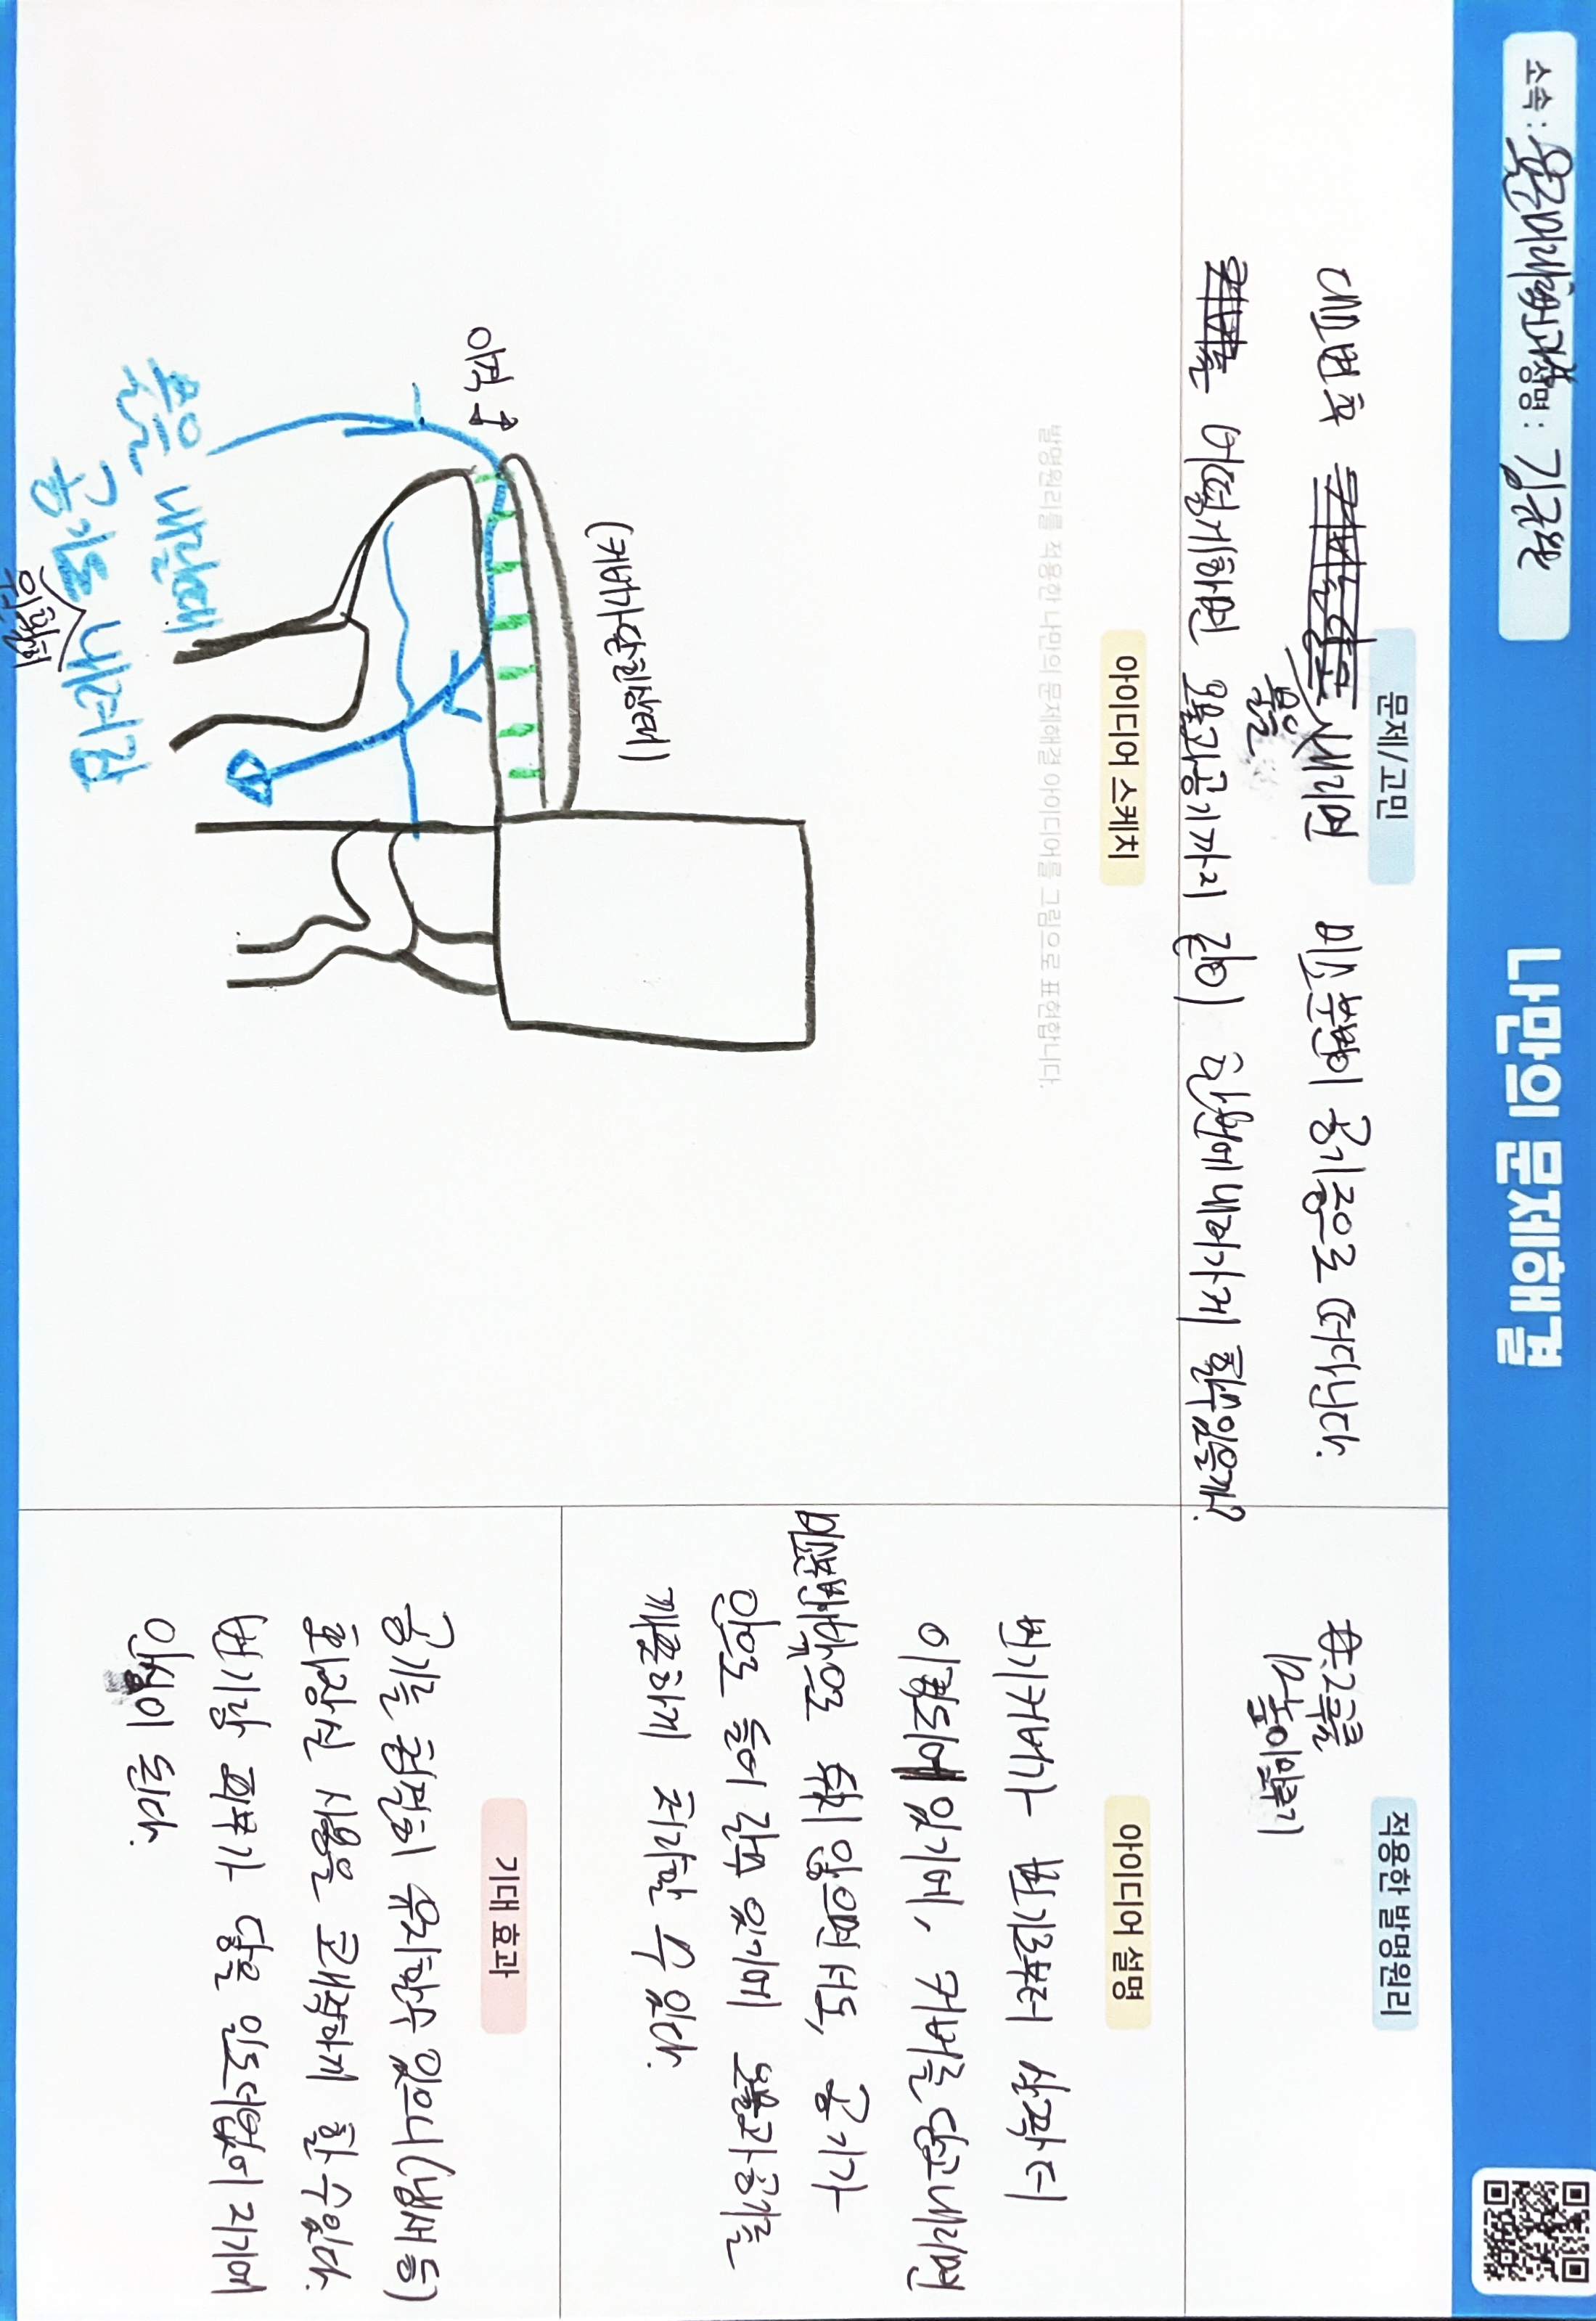 소속 : 성명 : 김규완
나만의 문제해결
문제/고민
대소변 후 물을 내리면 미소분변이 공기중으로 떠다닌다.
어떻게하면 오물과공기까지 같이 한번에 내려가게 할수있을까?
적용한 발명원리
12 높이맞추기
아이디어 스케치
발명원리를 적용한 나만의 문제해결 아이디어를 그림으로 표현합니다.
(커버가닫힌상태)
이격
물을 내릴때
공기도 원활히 내려감
아이디어 설명
변기커버가 변기로부터 살짝 더
이격되어 있기에, 커버를 닫고내리면
미소분변이 밖으로 튀지 않으면서도, 공기가
안으로 들어 갈수 있기에 오물과공기를
깨끗하게 처리할 수 있다.
기대 효과
공기를 청결히 유지할수 있으니(냄새 등)
화장실 사용을 쾌적하게 할 수있다.
변기랑 피부가 닿을 일도더없어 지기에
안심이 된다.